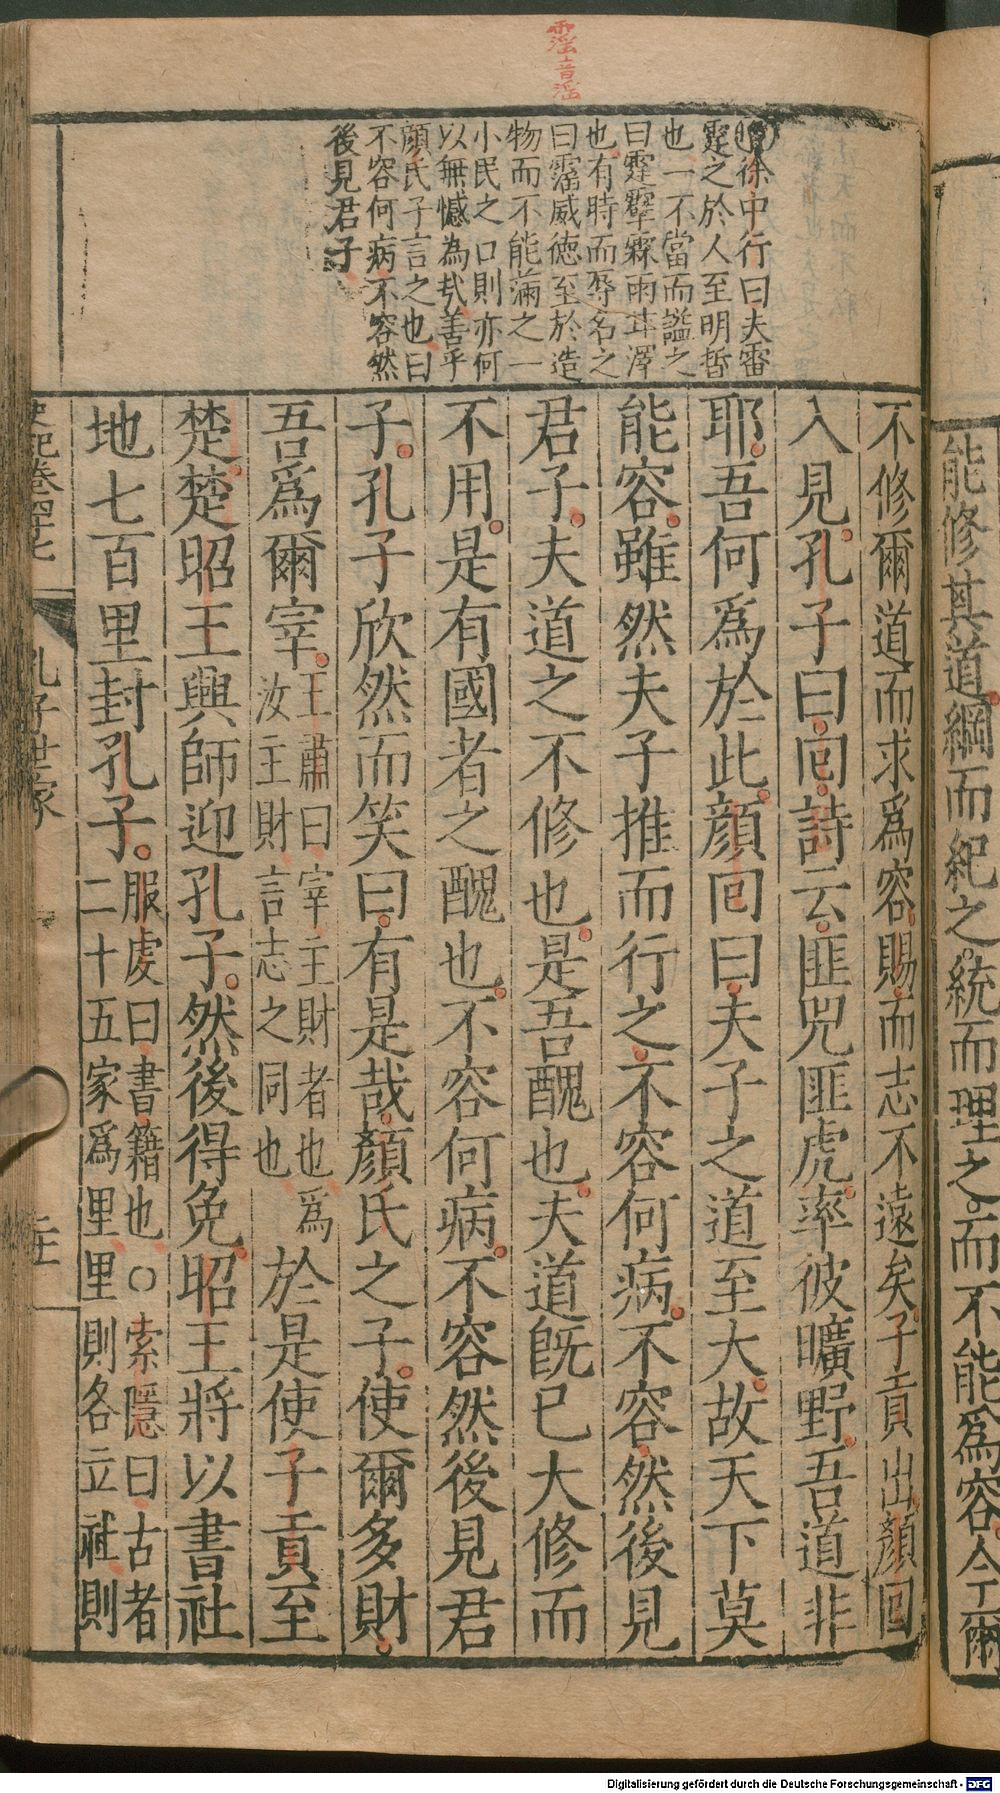 能修其道綱而紀之統而理之而不能爲容今爾
不修爾道而求爲容賜而志不遠矣子貢出顔回
入見孔子曰回詩云匪兕匪虎率彼曠野吾道非
耶吾何爲於此顔回曰夫子之道至大故天下莫
能容雖然夫子推而行之不容何病不容然後見
君子夫道之不修也是吾醜也夫道旣已大修而
不用是有國者之醜也不容何病不容然後見君
子孔子欣然而笑曰有是哉顔氏之子使爾多財
吾爲爾宰王肅曰宰主財者也爲汝主財言志之同也於是使子貢至
楚楚昭王興師迎孔子然後得免昭王將以書社
地七百里封孔子服虔曰書籍也〇索隱曰古者二十五家爲里里則各立社則
霪音淫
徐中行曰夫雷
霆之於人至明哲
也一不當而謚之
曰霆霪霖雨茾澤
也有時而辱名之
曰霪威德至於造
物而不能滿之一
小民之口則亦何
以無憾為㢤善乎
顔氏子言之也曰
不容何病不容然
後見君子
史記卷四十七
孔子世家
Digitalisierung gefördert durch die Deutsche Forschungsgemeinschaft - DFG